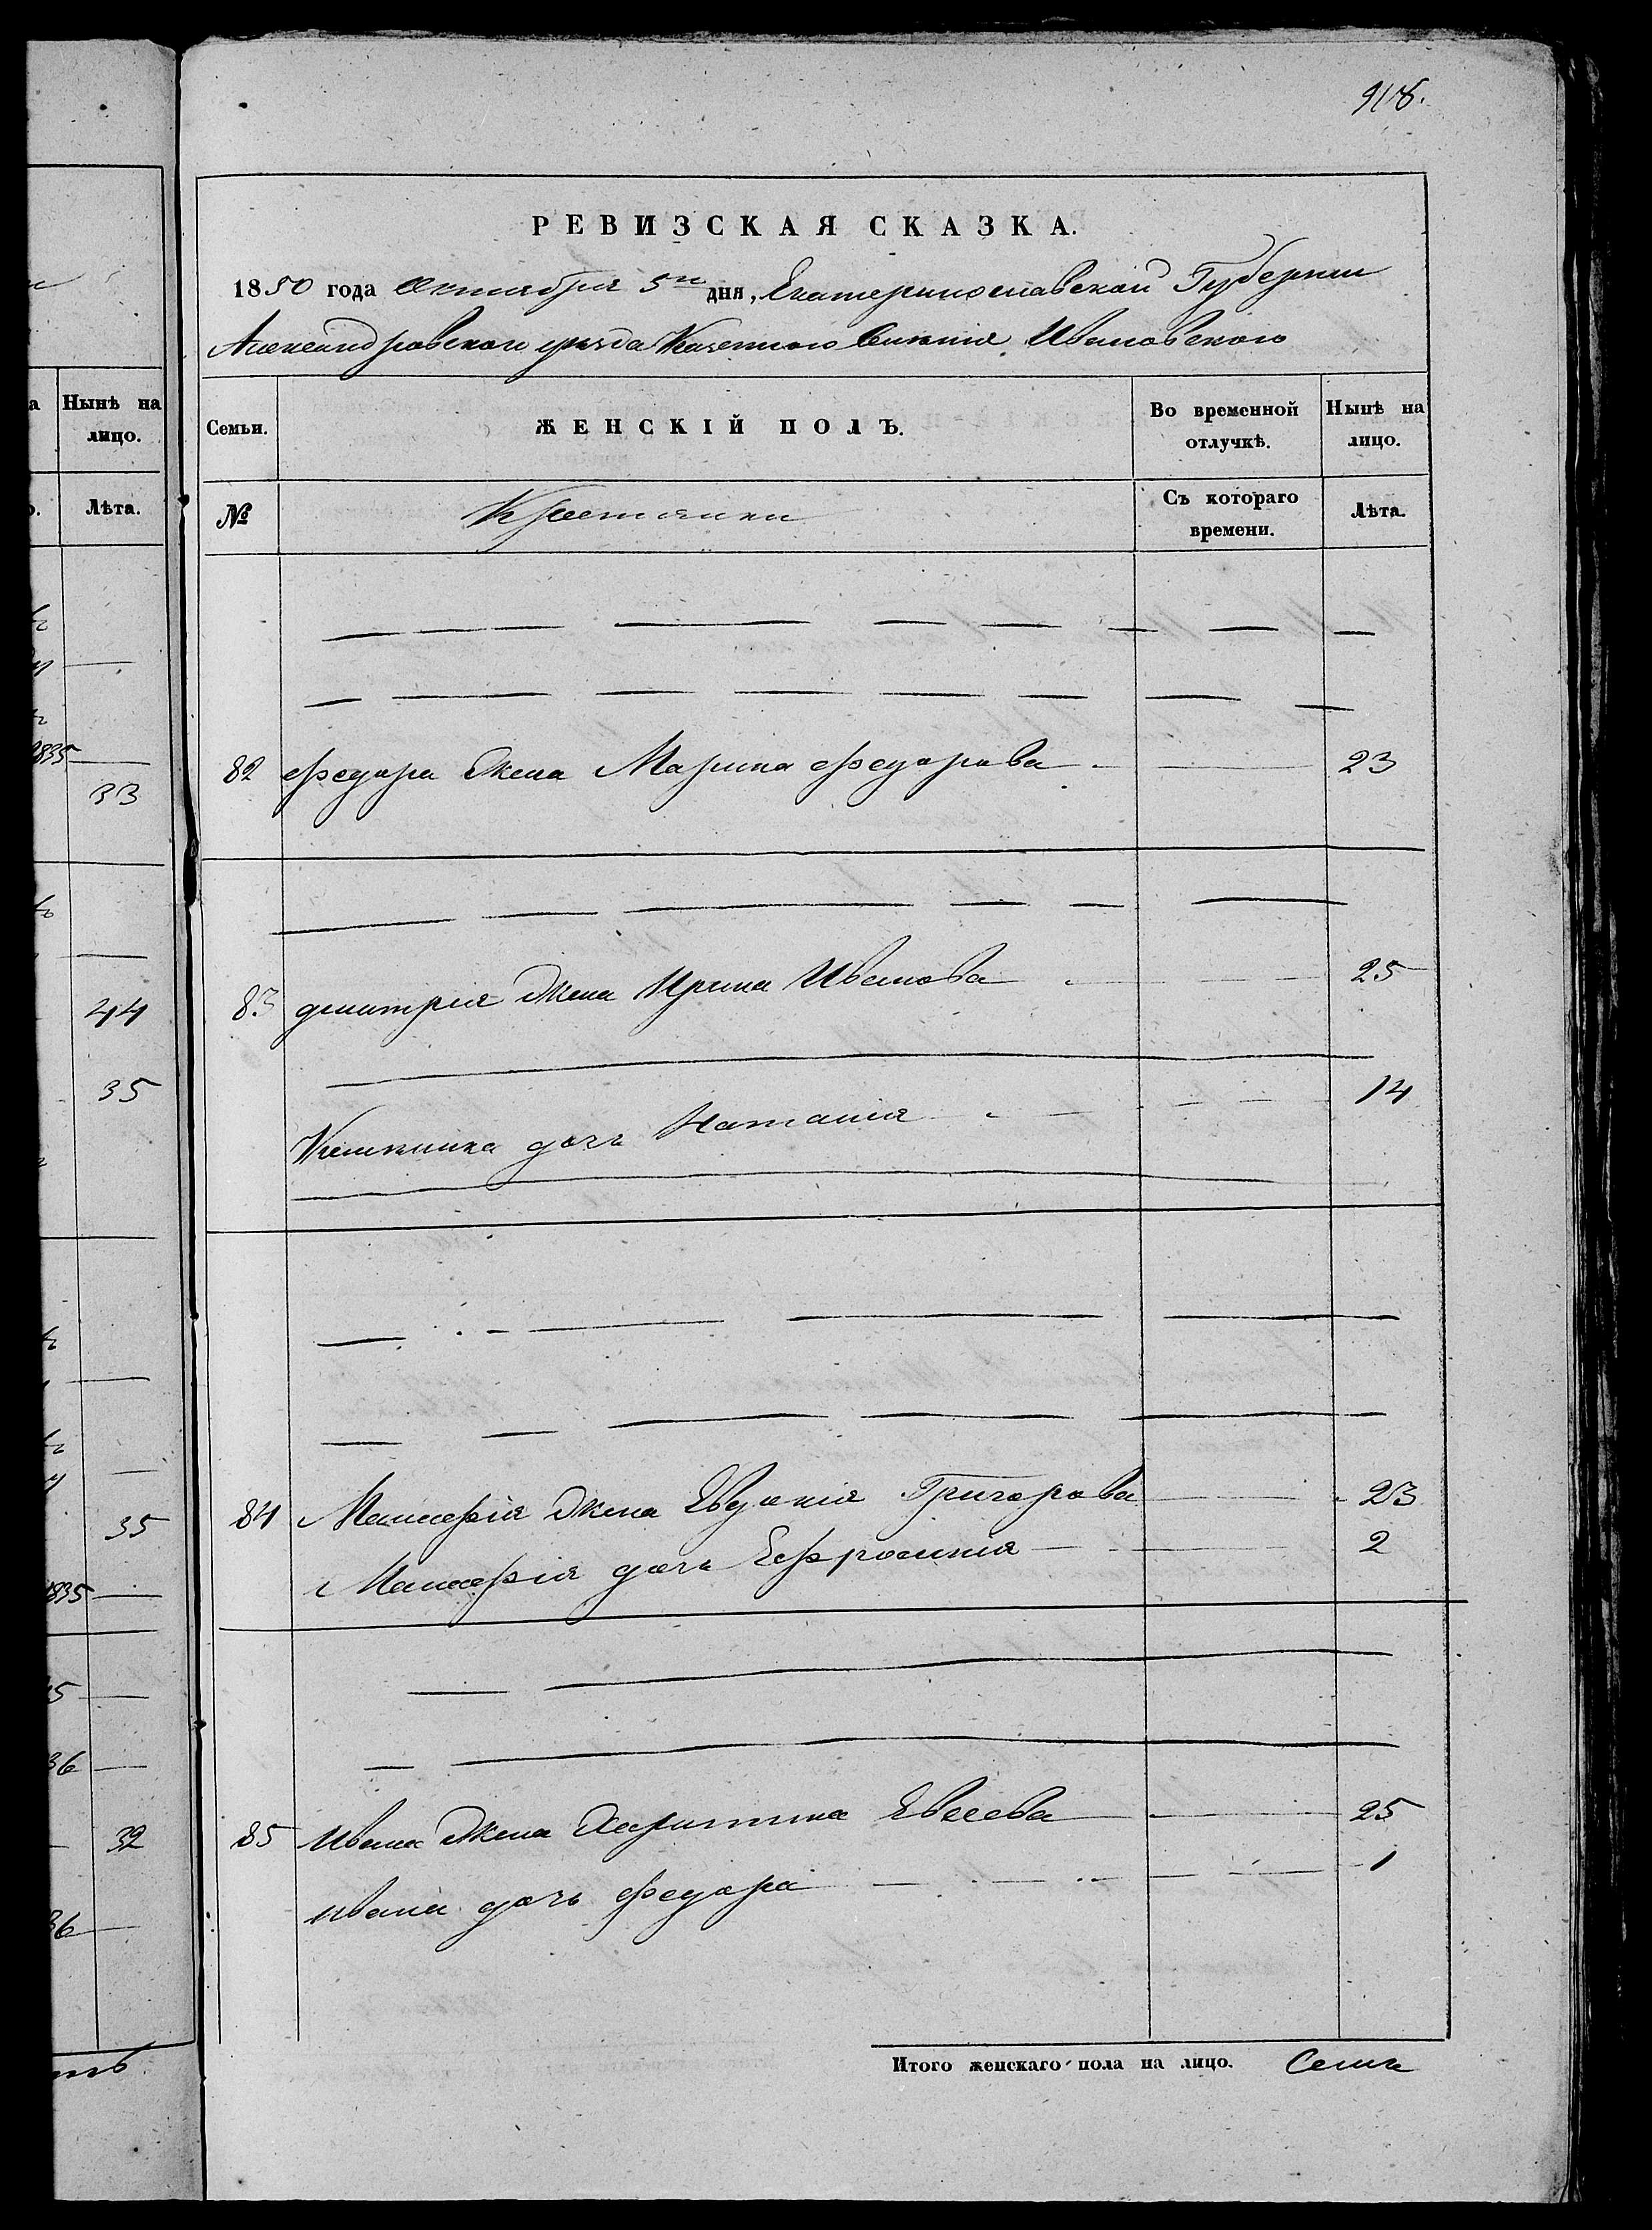 918.
РЕВИЗСКАЯ СКАЗКА.
1850 года Октября 5го дня, Екатеринославской Губернии
Александровского уѣзда Казенного Селенія Ивановского
а Нынѣ на лицо.
Лѣта.
1835
33
44
35
35
1835
36
32
36
Семьи.
ЖЕНСКІЙ ПОЛЪ.
Во временной отлучкѣ.
Нынѣ на лицо.
№
Крестянки
Съ котораго времени.
Лѣта.
82 Федора жена Марина Федорова 23
83 дмитрія жена Ирина Иванова 25
дочь Наталія 14
84 жена Евдокія Григорова 23
дочь Ефросинія 2
85 Ивана жена Харитина Евсеева 25
ивана дочь федора 1
Итого женскаго пола на лицо. Семь